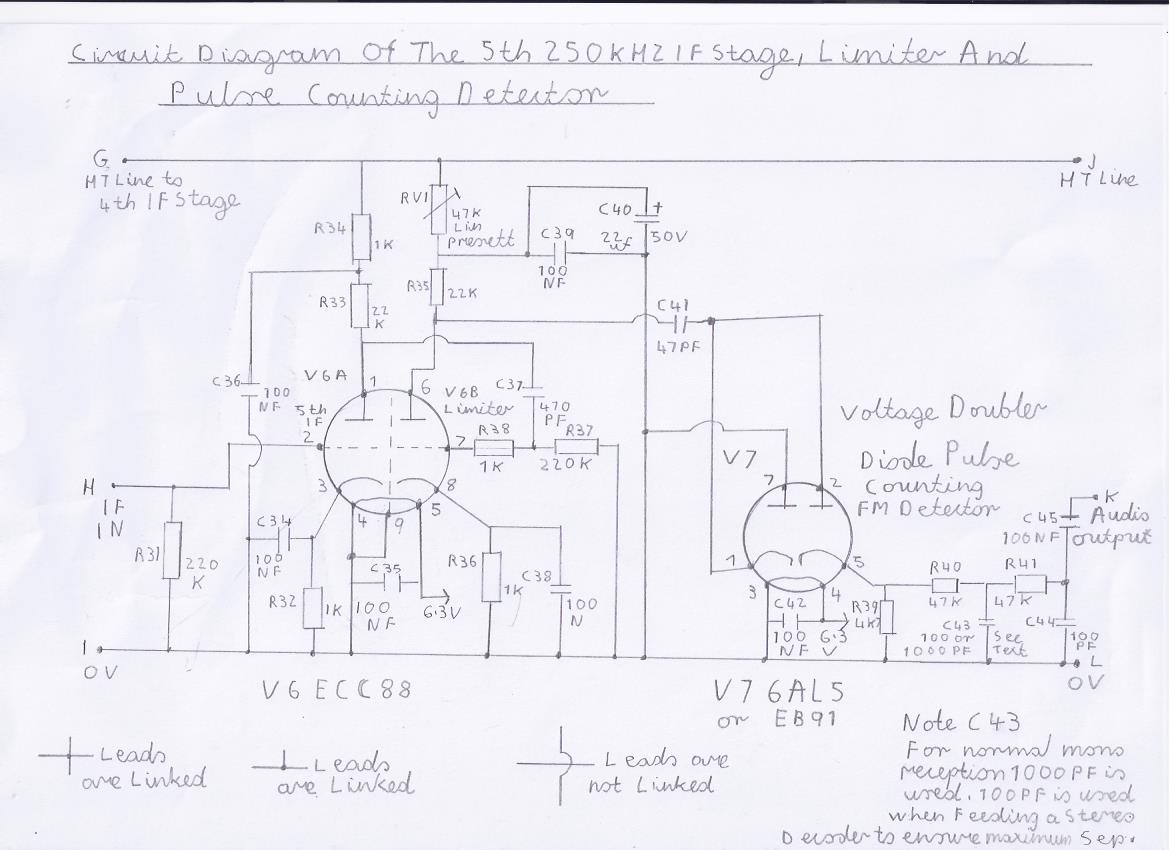 Circuit Diagram Of The 5th 250KHZ IF Stage, Limiter And
Pulse Counting Detector
G
HT Line to
4th IF Stage
J
HT Line
R34
1K
RV1
47K
Lin
Presett
C40
+
22
uf
50V
C39
100
NF
R33
22
K
R35
22K
C41
47PF
C36
100
NF
V6A
5th
IF
1
6
V6B
Limiter
C37
470
PF
R38
1K
R37
220K
2
7
3
8
4
9
5
H
IF
IN
R31
220
K
C34
100
NF
R32
1K
C35
100
NF
6.3V
R36
1K
C38
100
N
Voltage Doubler
Diode Pulse
Counting
FM Detector
V7
7
2
1
5
3
4
C42
100
NF
6.3
V
R39
4K7
R40
47K
R41
47K
C43
100 or
1000 PF
See
Text
C44
100
PF
C45
100NF
K
Audio
output
I
0V
L
0V
V6 ECC88
V7 6AL5
or EB91
Leads
are Linked
Leads
are Linked
Leads are
not Linked
Note C43
For normal mono
reception 1000PF is
used. 100PF is used
when Feeding a Stereo
Decoder to ensure maximum Sep.